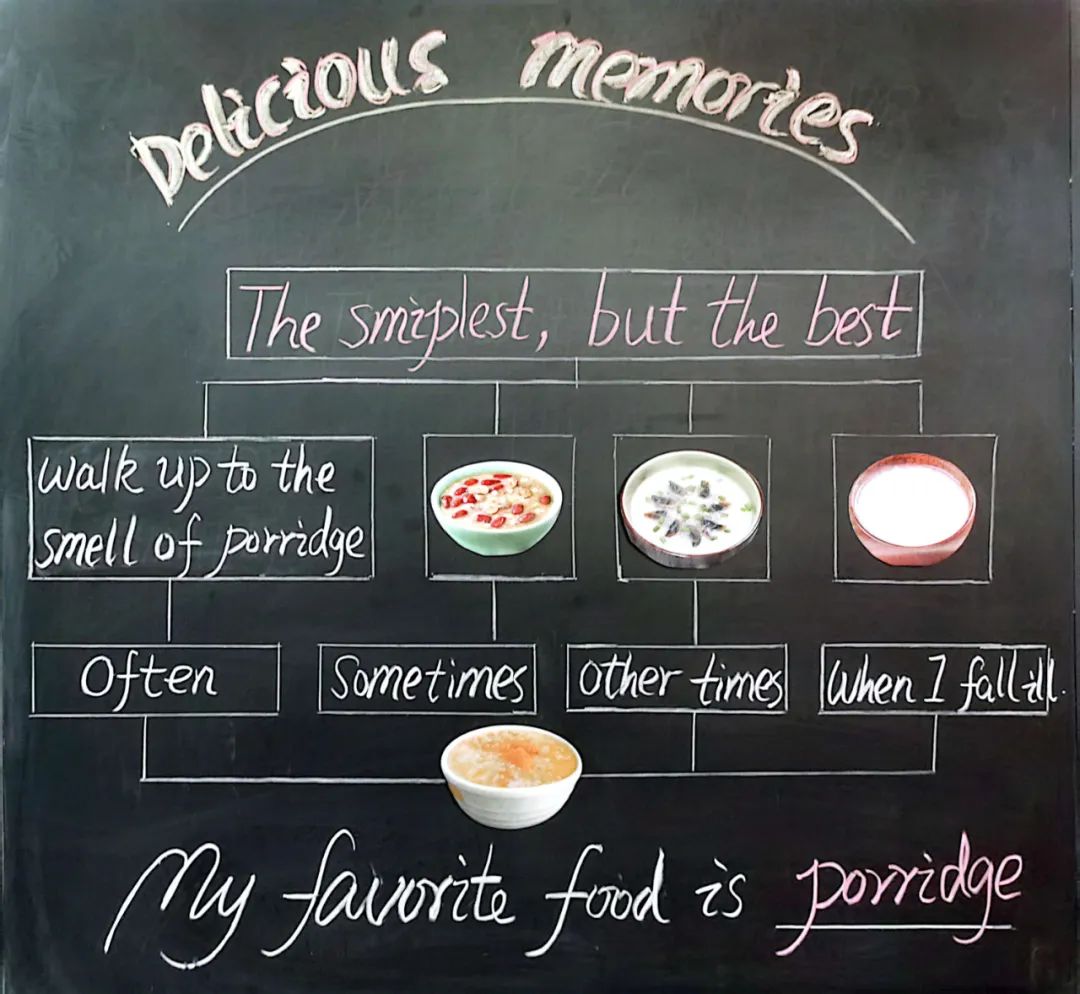 Delicious memories
The smiplest, but the best
walk up to the
smell of porridge
Often
Sometimes
other times
When I fall ill.
My favorite food is porridge